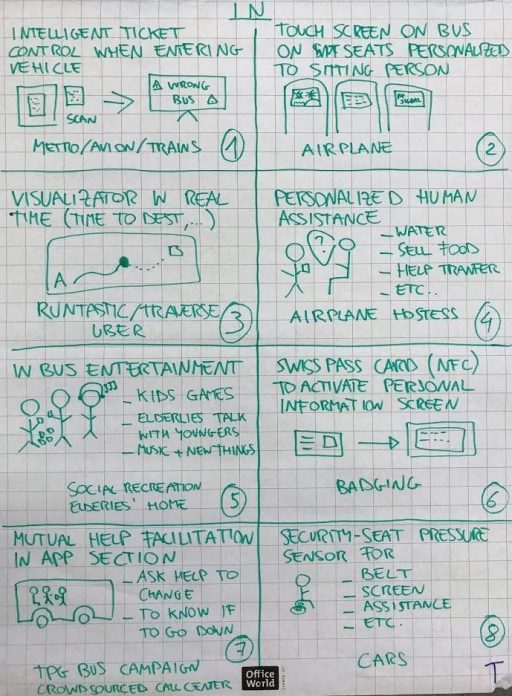 IN
INTELLIGENT TICKET
CONTROL WHEN ENTERING
VEHICLE
SCAN
WRONG
BUS
METRO/AVION/TRAINS
1
TOUCH SCREEN ON BUS
ON SEATS PERSONALIZED
TO SITTING PERSON
NO
SIGNAL
AIRPLANE
2
VISUALIZATOR IN REAL
TIME (TIME TO DEST,...)
A
B
RUNTASTIC/TRAVERSE
UBER
3
PERSONALIZED HUMAN
ASSISTANCE
?
- WATER
- SELL FOOD
- HELP TRANFER
- ETC..
AIRPLANE HOSTESS
4
IN BUS ENTERTAINMENT
- KIDS GAMES
- ELDERLIES TALK
WITH YOUNGERS
- MUSIC + NEW THINGS
SOCIAL RECREATION
ELDERIES' HOME
5
SWISS PASS CARD (NFC)
TO ACTIVATE PERSONAL
INFORMATION SCREEN
BADGING
6
MUTUAL HELP FACILITATION
IN APP SECTION
- ASK HELP TO
CHANGE
- TO KNOW IF
TO GO DOWN
7
TPG BUS CAMPAIGN
CROWDSOURCED CALL CENTER
SECURITY-SEAT PRESSURE
SENSOR FOR
- BELT
- SCREEN
- ASSISTANCE
- ETC.
8
CARS
T
Office
World